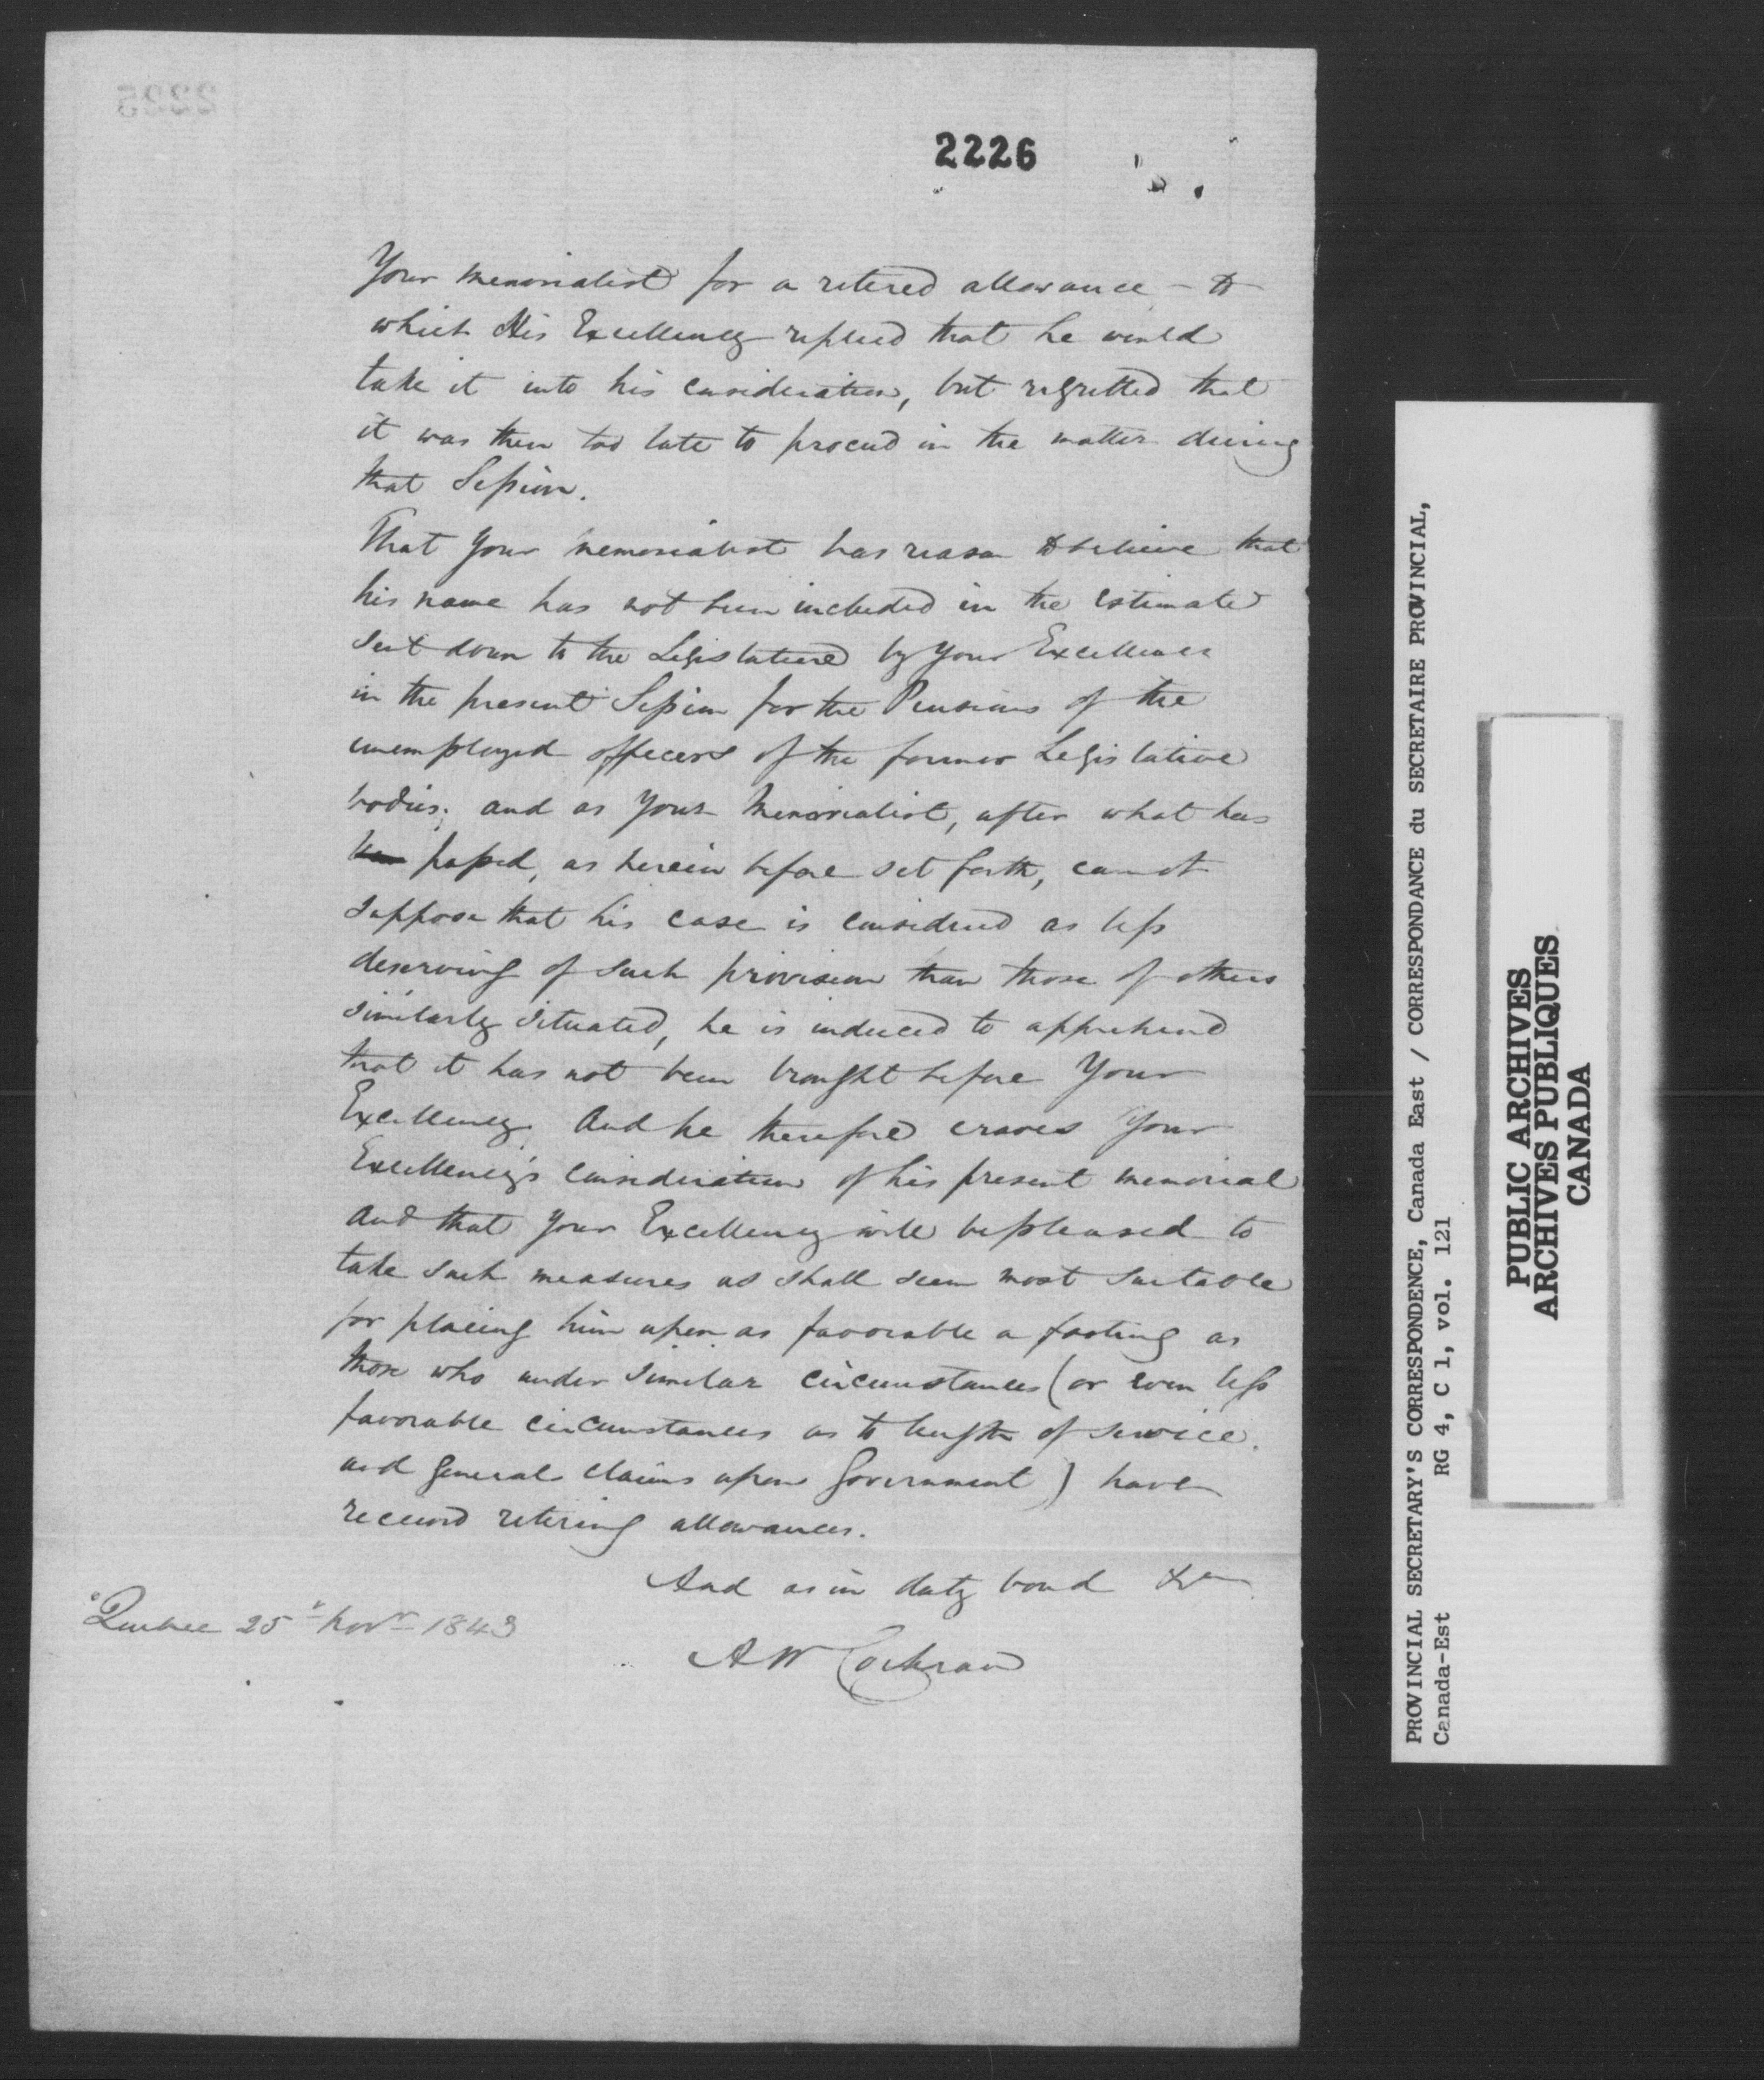 2226
Your memorialist for a retired allowance – to
which His Excellency replied that he would
take it into his consideration, but regretted that
it was then too late to proceed in the matter during
that Session.
That Your memorialist has reason to believe that
his name has not been included in the Estimate
sent down to the Legislature by Your Excellency
in the present Session for the Pensions of the
unemployed officers of the former Legislative
bodies; and as Your Memorialist, after what has
passed, as herein before set forth, cannot
suppose that his case is considered as less
deserving of such provision than those of others
similarly situated, he is induced to apprehend
that it has not been brought before Your
Excellency. And he therefore craves Your
Excellency's consideration of his present memorial
and that Your Excellency will be pleased to
take such measures as shall seem most suitable
for placing him upon as favorable a footing as
those who under similar circumstances (or even less
favorable circumstances as to length of service
and general claims upon Government) have
received retiring allowances.
And as in duty bound &c
Quebec 25th Novr 1843
A W Cochran
PROVINCIAL SECRETARY'S CORRESPONDENCE, Canada East / CORRESPONDANCE du SECRETAIRE PROVINCIAL,
Canada-Est RG 4, C 1, vol. 121
PUBLIC ARCHIVES
ARCHIVES PUBLIQUES
CANADA